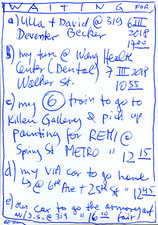 WAITING FOR
a) Ulla + David @ 319 6 III
Deventer Becker 2018
1700
b) my turn @ Wang Health
Center (Dental) 7 III 2018
Walker St. 10 55
c) my 6 train to go to
Killen Gallery & pick up
painting for REMI @
Spring St METRO " 12 15
d) my VIA car to go home
@ 6th Ave + 25th St " 12 45
e) our car to go the armory art
w/ J.S. @ 319 " 16 10 fair)